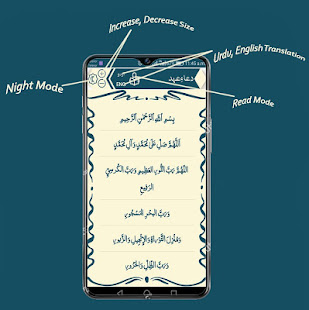 Increase, Decrease Size
Urdu, English Translation
Night Mode
Read Mode
11:45
ENG
دعاءِ عہد
بِسْمِ اللّٰهِ الرَّحْمٰنِ الرَّحِيْمِ
اَللّٰهُمَّ صَلِّ عَلٰى مُحَمَّدٍ وَّاٰلِ مُحَمَّدٍ
اَللّٰهُمَّ رَبَّ النُّوْرِ الْعَظِيْمِ وَرَبَّ الْكُرْسِيِّ
الرَّفِيْعِ
وَرَبَّ الْبَحْرِ الْمَسْجُوْرِ
وَمُنْزِلَ التَّوْرَاةِ وَالْاِنْجِيْلِ وَالزَّبُوْرِ
وَرَبَّ الظِّلِّ وَالْحَرُوْرِ